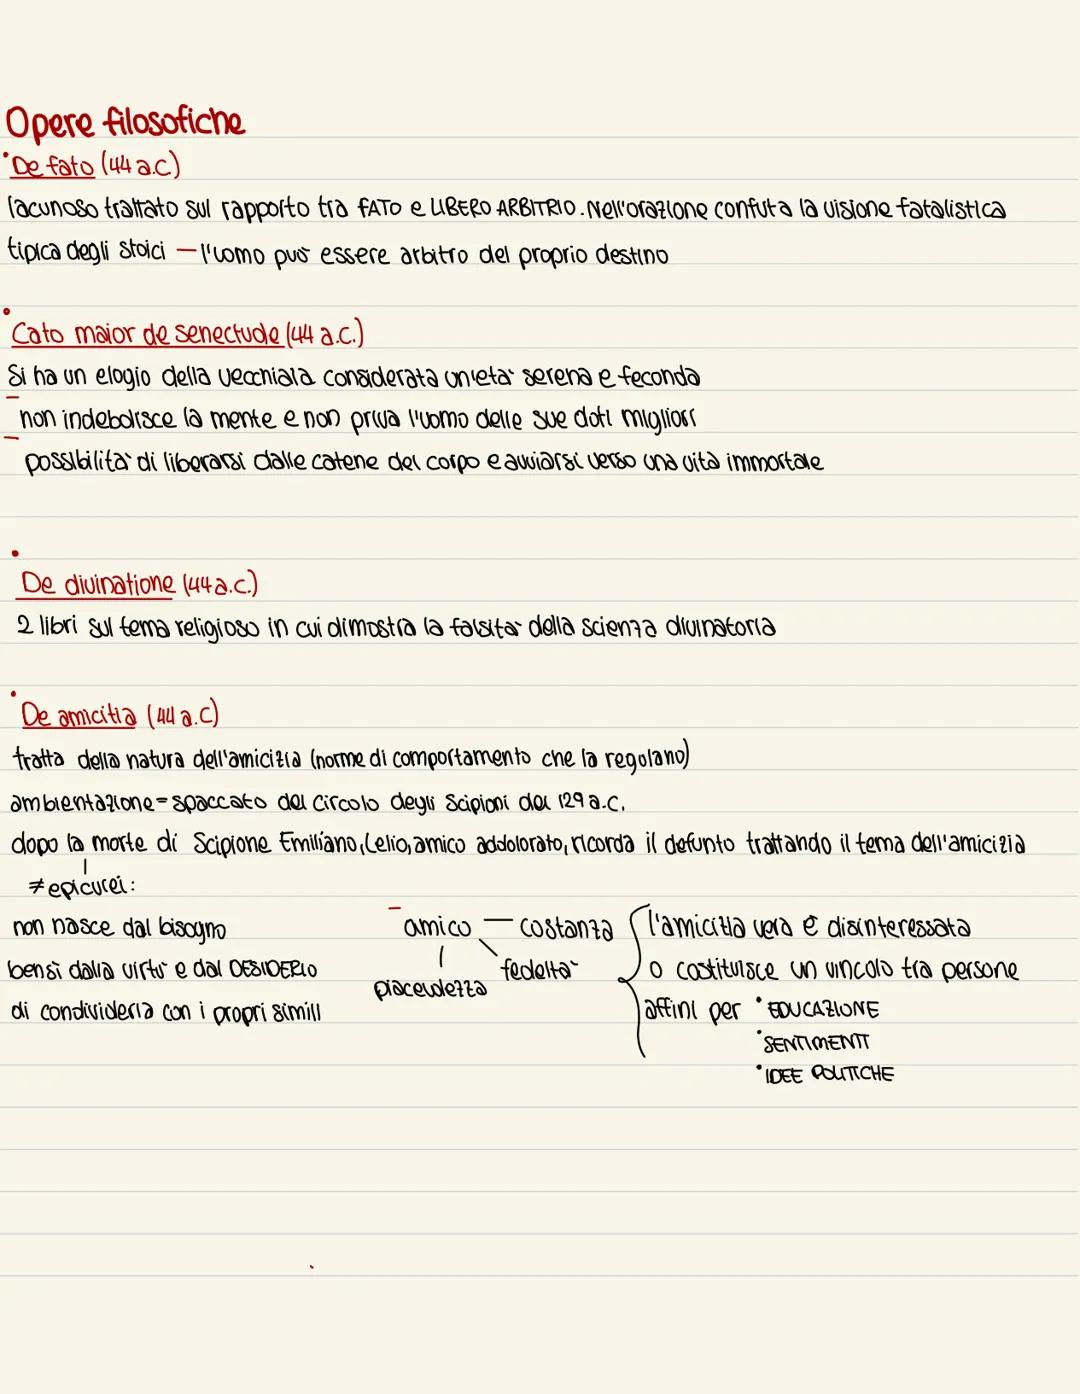 Opere filosofiche
• De fato (44 a.C)
lacunoso trattato sul rapporto tra FATO e LIBERO ARBITRIO. Nell'orazione confuta la visione fatalistica
tipica degli stoici — l'uomo può essere arbitro del proprio destino
• Cato maior de senectude (44 a.C.)
Si ha un elogio della vecchiaia considerata un'età serena e feconda
– non indebolisce la mente e non priva l'uomo delle sue doti migliori
– possibilità di liberarsi dalle catene del corpo e avviarsi verso una vita immortale
• De divinatione (44 a.C.)
2 libri sul tema religioso in cui dimostra la falsità della scienza divinatoria
• De amicitia (44 a.C)
tratta della natura dell'amicizia (norme di comportamento che la regolano)
ambientazione = spaccato del circolo degli Scipioni del 129 a.C.
dopo la morte di Scipione Emiliano, Lelio, amico addolorato, ricorda il defunto trattando il tema dell'amicizia
≠ epicurei:
non nasce dal bisogno
bensì dalla virtù e dal DESIDERIO
di condividerla con i propri simili
– amico — costanza
fedeltà
piacevolezza
l'amicitia vera è disinteressata
o costituisce un vincolo tra persone
affini per • EDUCAZIONE
• SENTIMENTI
• IDEE POLITICHE